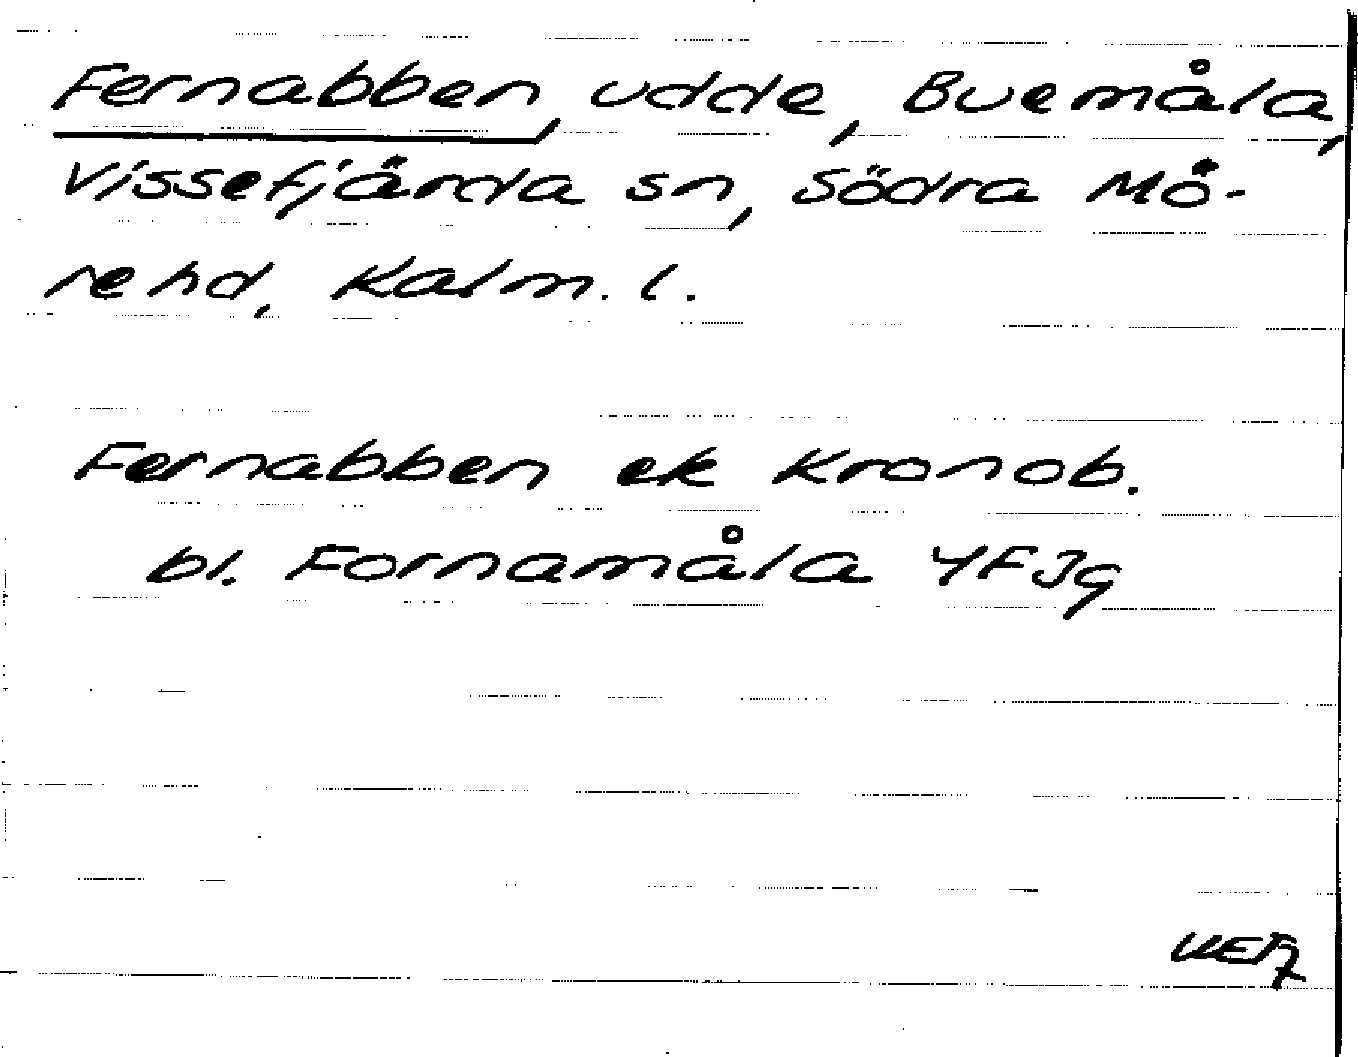 Fernabben, udde, Buemåla,
Vissefjärda sn, Södra Mö-
rehd, Kalm. l.
Fernabben ek Kronob.
bl. Fornamåla 4FJg